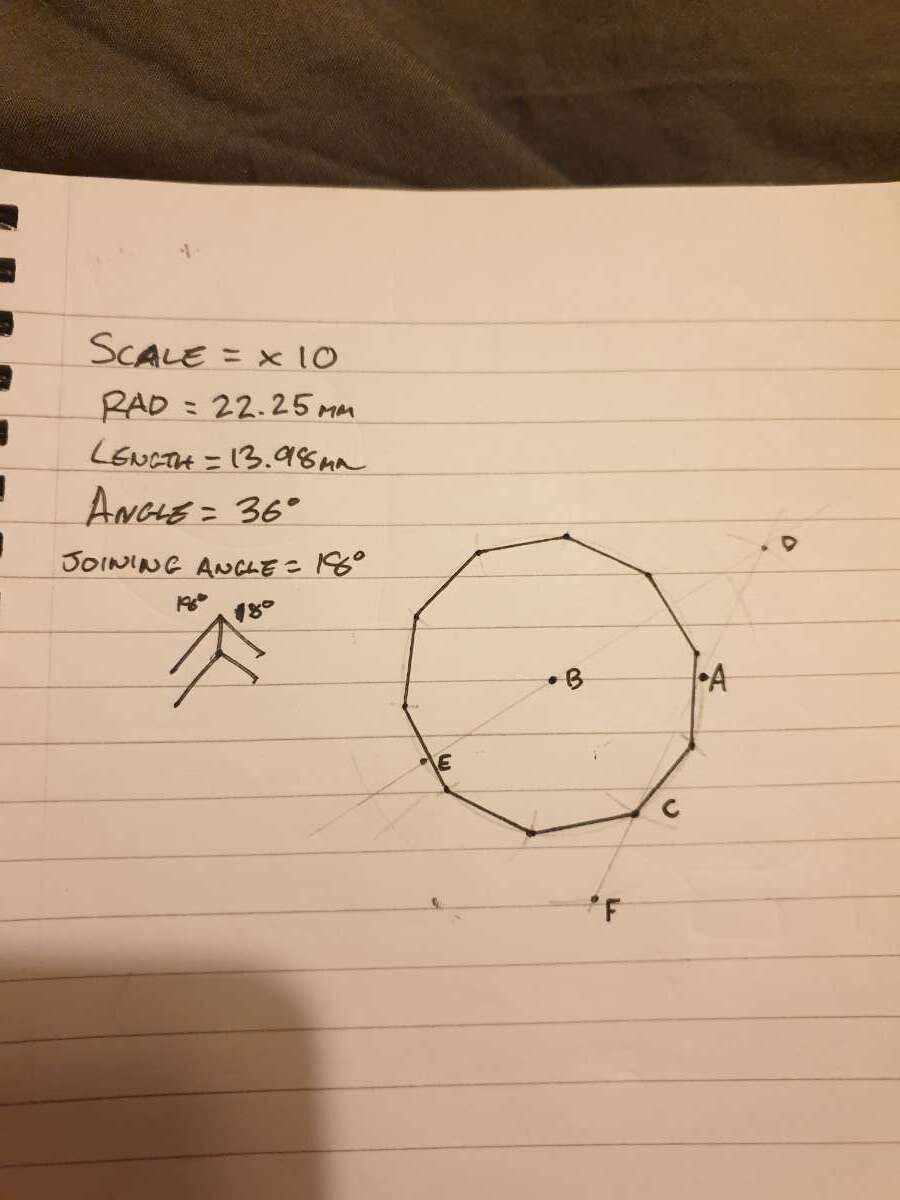 SCALE = x 10
RAD = 22.25mm
LENGTH = 13.98mm
ANGLE = 36°
JOINING ANGLE = 18°
18° 18°
D
B
A
E
C
F